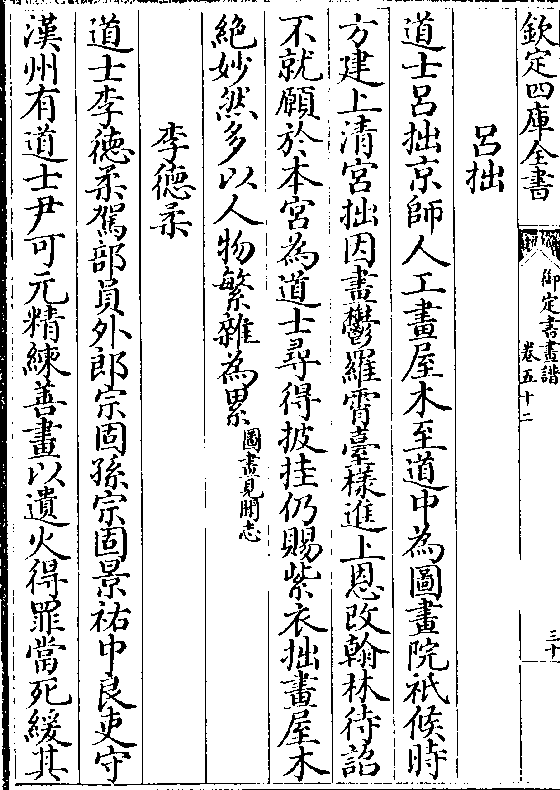 欽定四庫全書
御定書畫譜
卷五十二
三十
呂拙
道士呂拙京師人工畫屋木至道中為圖畫院祗候時
方建上清宮拙因畫鬱羅霄臺樣進上恩改翰林待詔
不就願於本宮為道士尋得披挂仍賜紫衣拙畫屋木
絶妙然多以人物繁雜為累圖畫見聞志
李德柔
道士李德柔駕部員外郎宗固孫宗固景祐中良吏守
漢州有道士尹可元精練善畫以遺火得罪當死緩其